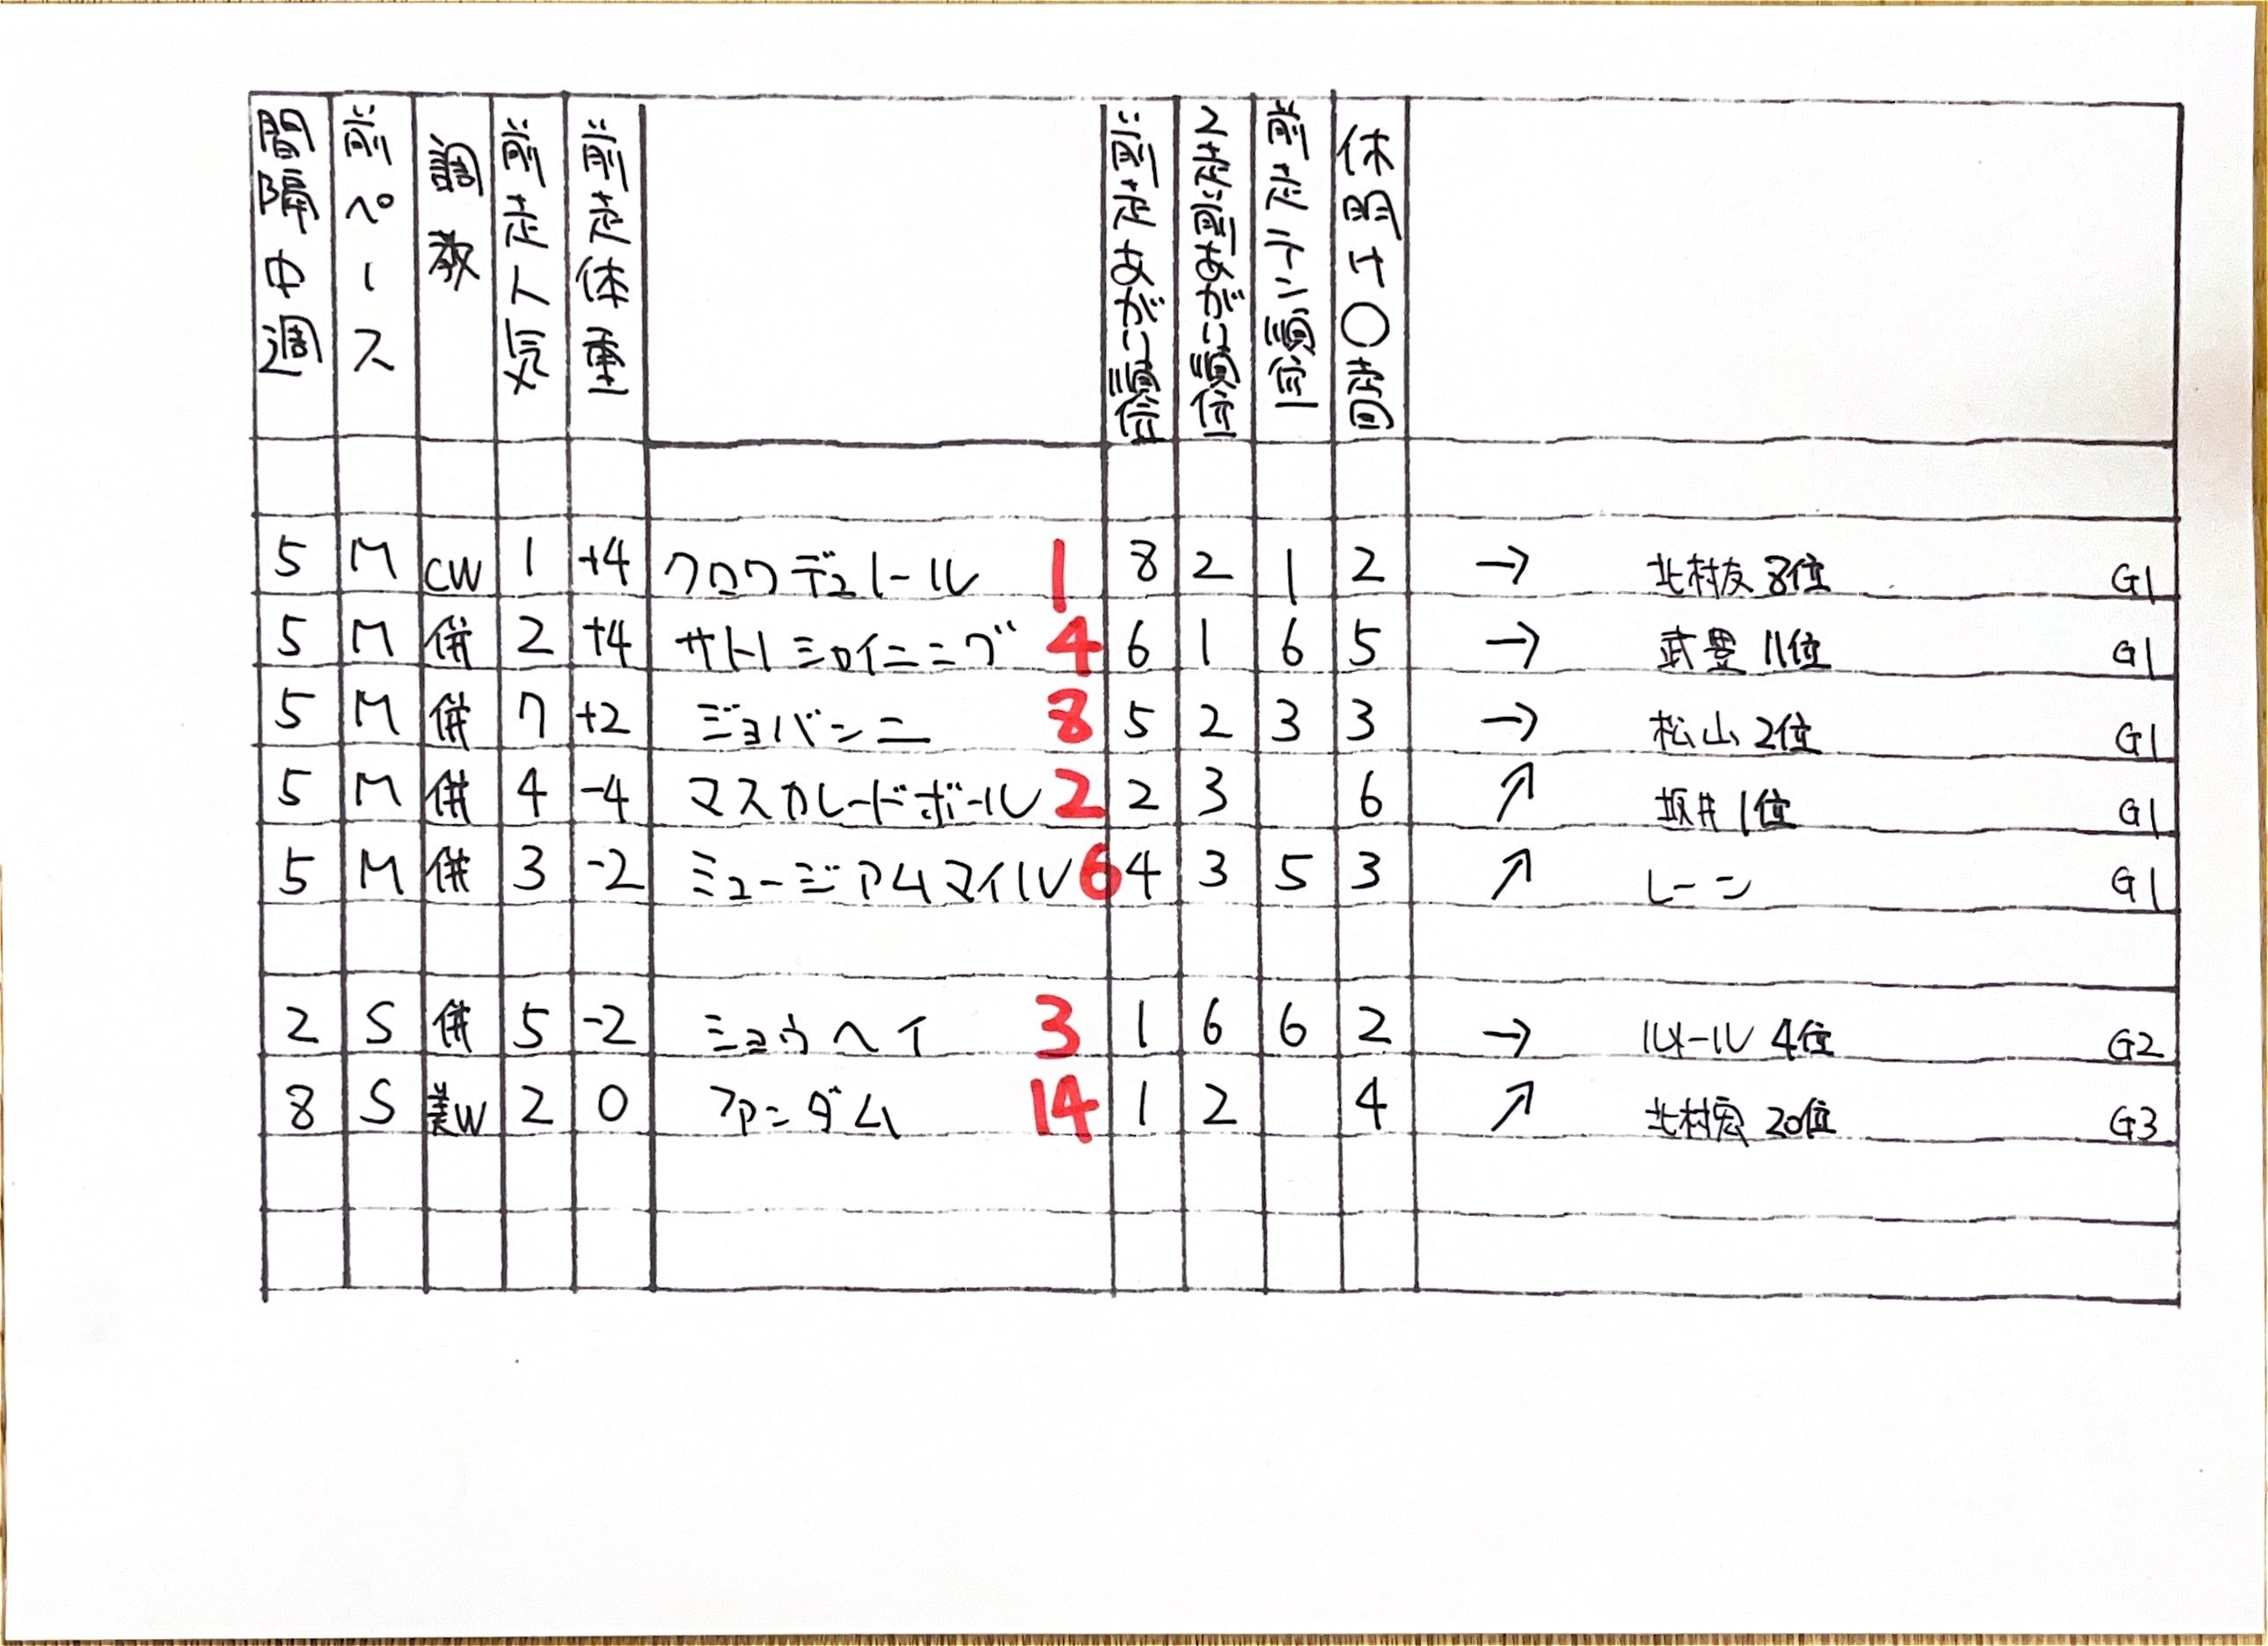 間隔中週 前ペース 調教 前走人気 前走体重 前走あがり順位 2走前あがり順位 前走テン順位 休明け〇走目
5 M CW 1 +4 クロワデュノール 1 8 2 1 2 → 北村友 8位 G1
5 M 併 2 +4 サトノシャイニング 4 6 1 6 5 → 武豊 11位 G1
5 M 併 7 +2 ジョバンニ 8 5 2 3 3 → 松山 2位 G1
5 M 併 4 -4 マスカレードボール 2 2 3 6 ↗ 坂井 1位 G1
5 M 併 3 -2 ミュージアムマイル 6 4 3 5 3 ↗ レーン G1
2 S 併 5 -2 ショウヘイ 3 1 6 6 2 → ルメール 4位 G2
8 S 美W 2 0 ファンダム 14 1 2 4 ↗ 北村宏 20位 G3